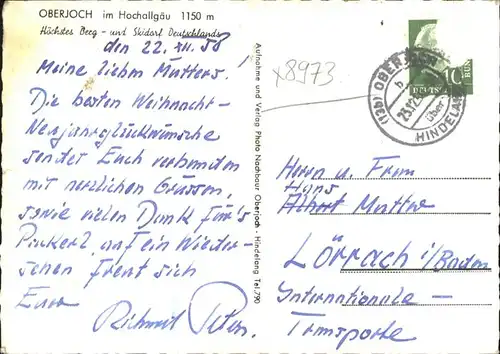 OBERJOCH im Hochallgäu 1150 m
Höchstes Berg- und Skidorf Deutschlands
den 22. XII. 58
Meine lieben Mutters!
Die besten Weihnacht-
Neujahrglückwünsche
sendet Euch verbunden
mit herzlichen Grüssen,
sowie vielen Dank für's
Packerl, auf ein Wieder-
sehen freut sich
Euer
Peter
Aufnahme und Verlag Photo Nachbaur Oberjoch - Hindelang Tel. 790
x8973
(13b) OBERJOCH
über
HINDELANG
23.12.
10
DEUTSCHE BUN
Herrn u. Frau
Hans
Albert Mutter
Lörrach i/Baden
Internationale-
Transporte